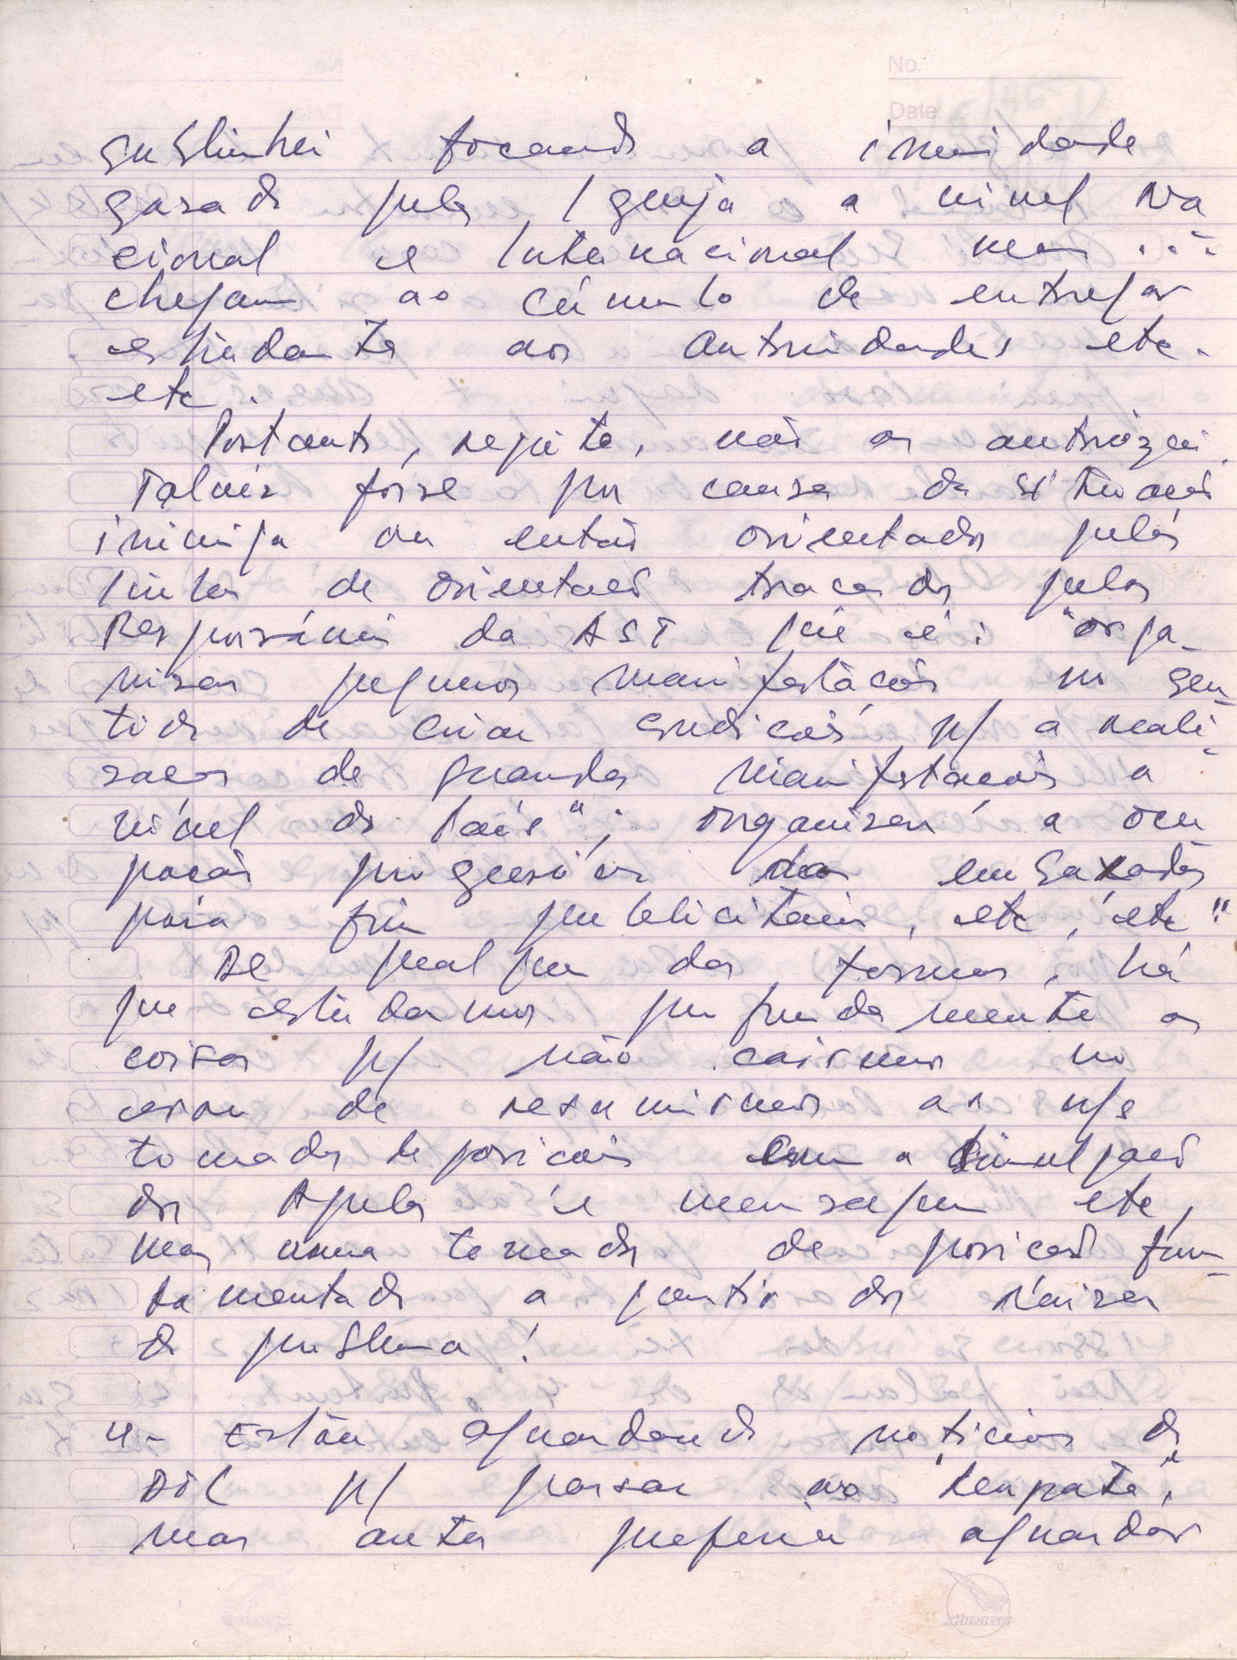 No.
Date
sublinhei focando a imunidade
gosado pela Igreja a nível Na
cional e Internacional mas ...
chegam ao cúmulo de entregar
estudantes aos autoridades etc.
etc.
Portanto, repito, não os autorizei.
Talvez fosse por causa da situação
inimiga ou então orientados pelas
linhas de orientação traçados pelos
Responsáveis da AST que é: "orga-
nisar pequenos manifestações no sen-
tido de criar condições p/ a reali-
sação de grandes manifestações a
nível do País"; organisar a ocu
pação progressiva das embaxadas
para fim publicitario, etc, etc".
De qualquer das formas, há
que estudarmos profundamente as
coisas p/ não cairmos no
erro de resumirmos as n/s
tomadas de posições com a divulgação
dos Apelos e mensagem etc,
mas numa tomada de posição fun-
damentado a partir das raizes
do problema!
4- Estão aguardando noticias do
DOC p/ passar ao "empate",
mas antes preferia aguardar